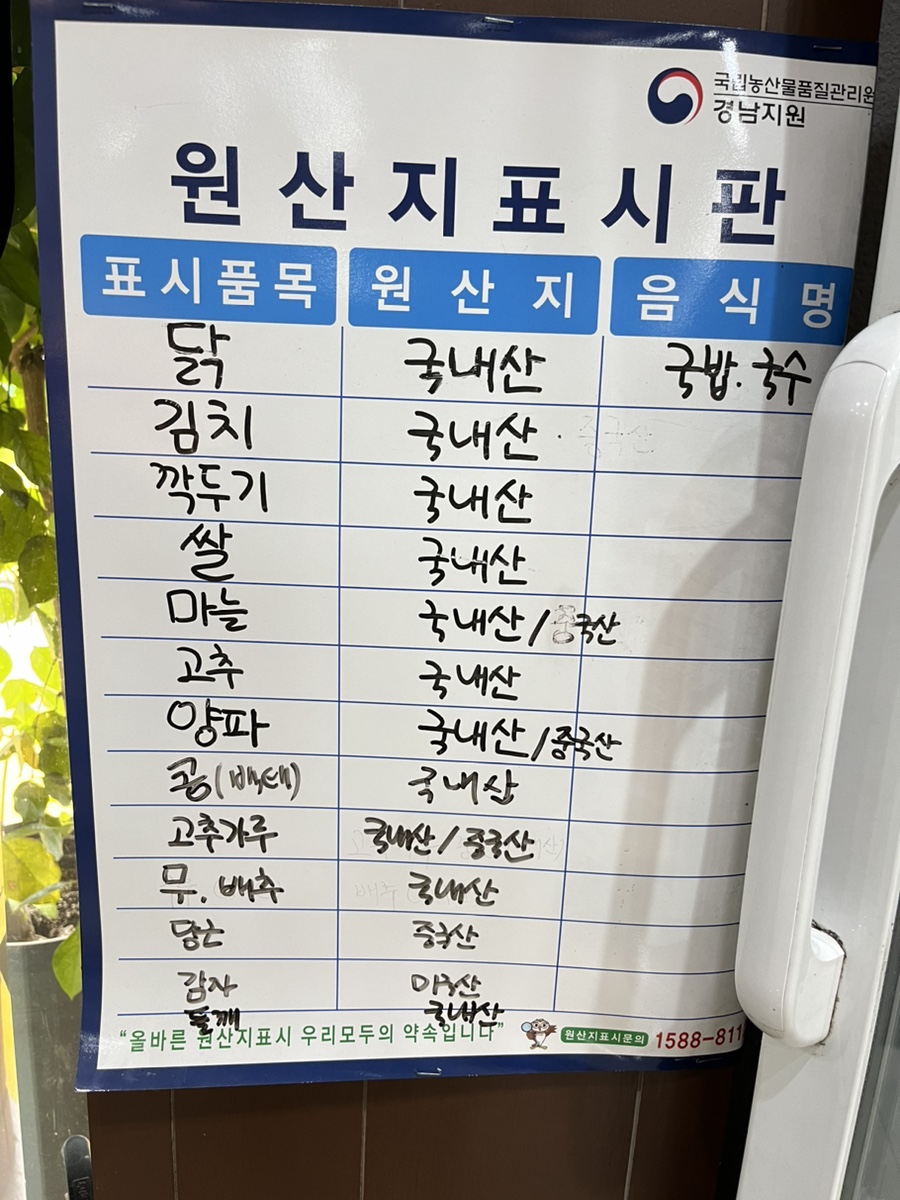 국립농산물품질관리원
경남지원
원산지표시판
표시품목 원산지 음식명
닭 국내산 국밥. 국수
김치 국내산
깍두기 국내산
쌀 국내산
마늘 국내산/중국산
고추 국내산
양파 국내산/중국산
콩(백태) 국내산
고추가루 국내산/중국산
무, 배추 국내산
당근 중국산
감자 미국산
들깨 국내산
"올바른 원산지표시 우리모두의 약속입니다" 원산지표시문의 1588-811